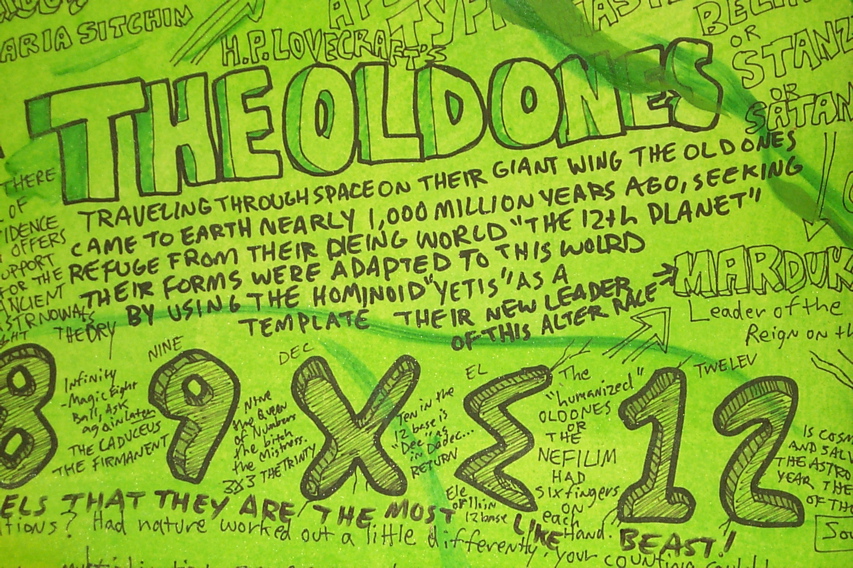 ARIA SITCHIN
H.P. LOVECRAFT'S
OR
STANZ
OR
SATAN
THE OLD ONES
TRAVELING THROUGH SPACE ON THEIR GIANT WING THE OLD ONES
CAME TO EARTH NEARLY 1,000 MILLION YEARS AGO, SEEKING
REFUGE FROM THEIR DIEING WORLD "THE 12th PLANET"
THEIR FORMS WERE ADAPTED TO THIS WOIRD
BY USING THE HOMINOID "YETIS" AS A
TEMPLATE THEIR NEW LEADER
OF THIS ALTER RACE
THERE
OF
IDENCE
OFFERS
UPPORT
FOR THE
NCIENT
ASTRNOWATS
THEORY
MARDUK
Leader of the
Reign on th
8
Infinity
-Magic Eight
Ball, Ask
again Later
THE CADUCEUS
THE FIRMANENT
NINE
9
Nine
the Queen
of Numbers
the bitch
the Mistress.
3x3 THE TRINITY
DEC
X
Ten in the
12 base is
"Dec" as
in Dadec...
RETURN
EL
Σ
Ele
12 base
The
"humanized"
OLD ONES
OR
THE
NEFILIM
HAD
SIX fingers
on
each
Hand.
TWELEV
12
IS COSM
AND SALV
THE ASTRO
YEAR, THE
OF THE
So
ELS THAT THEY ARE THE MOST LIKE BEAST!
tions? Had nature worked out a little differently, your counting could